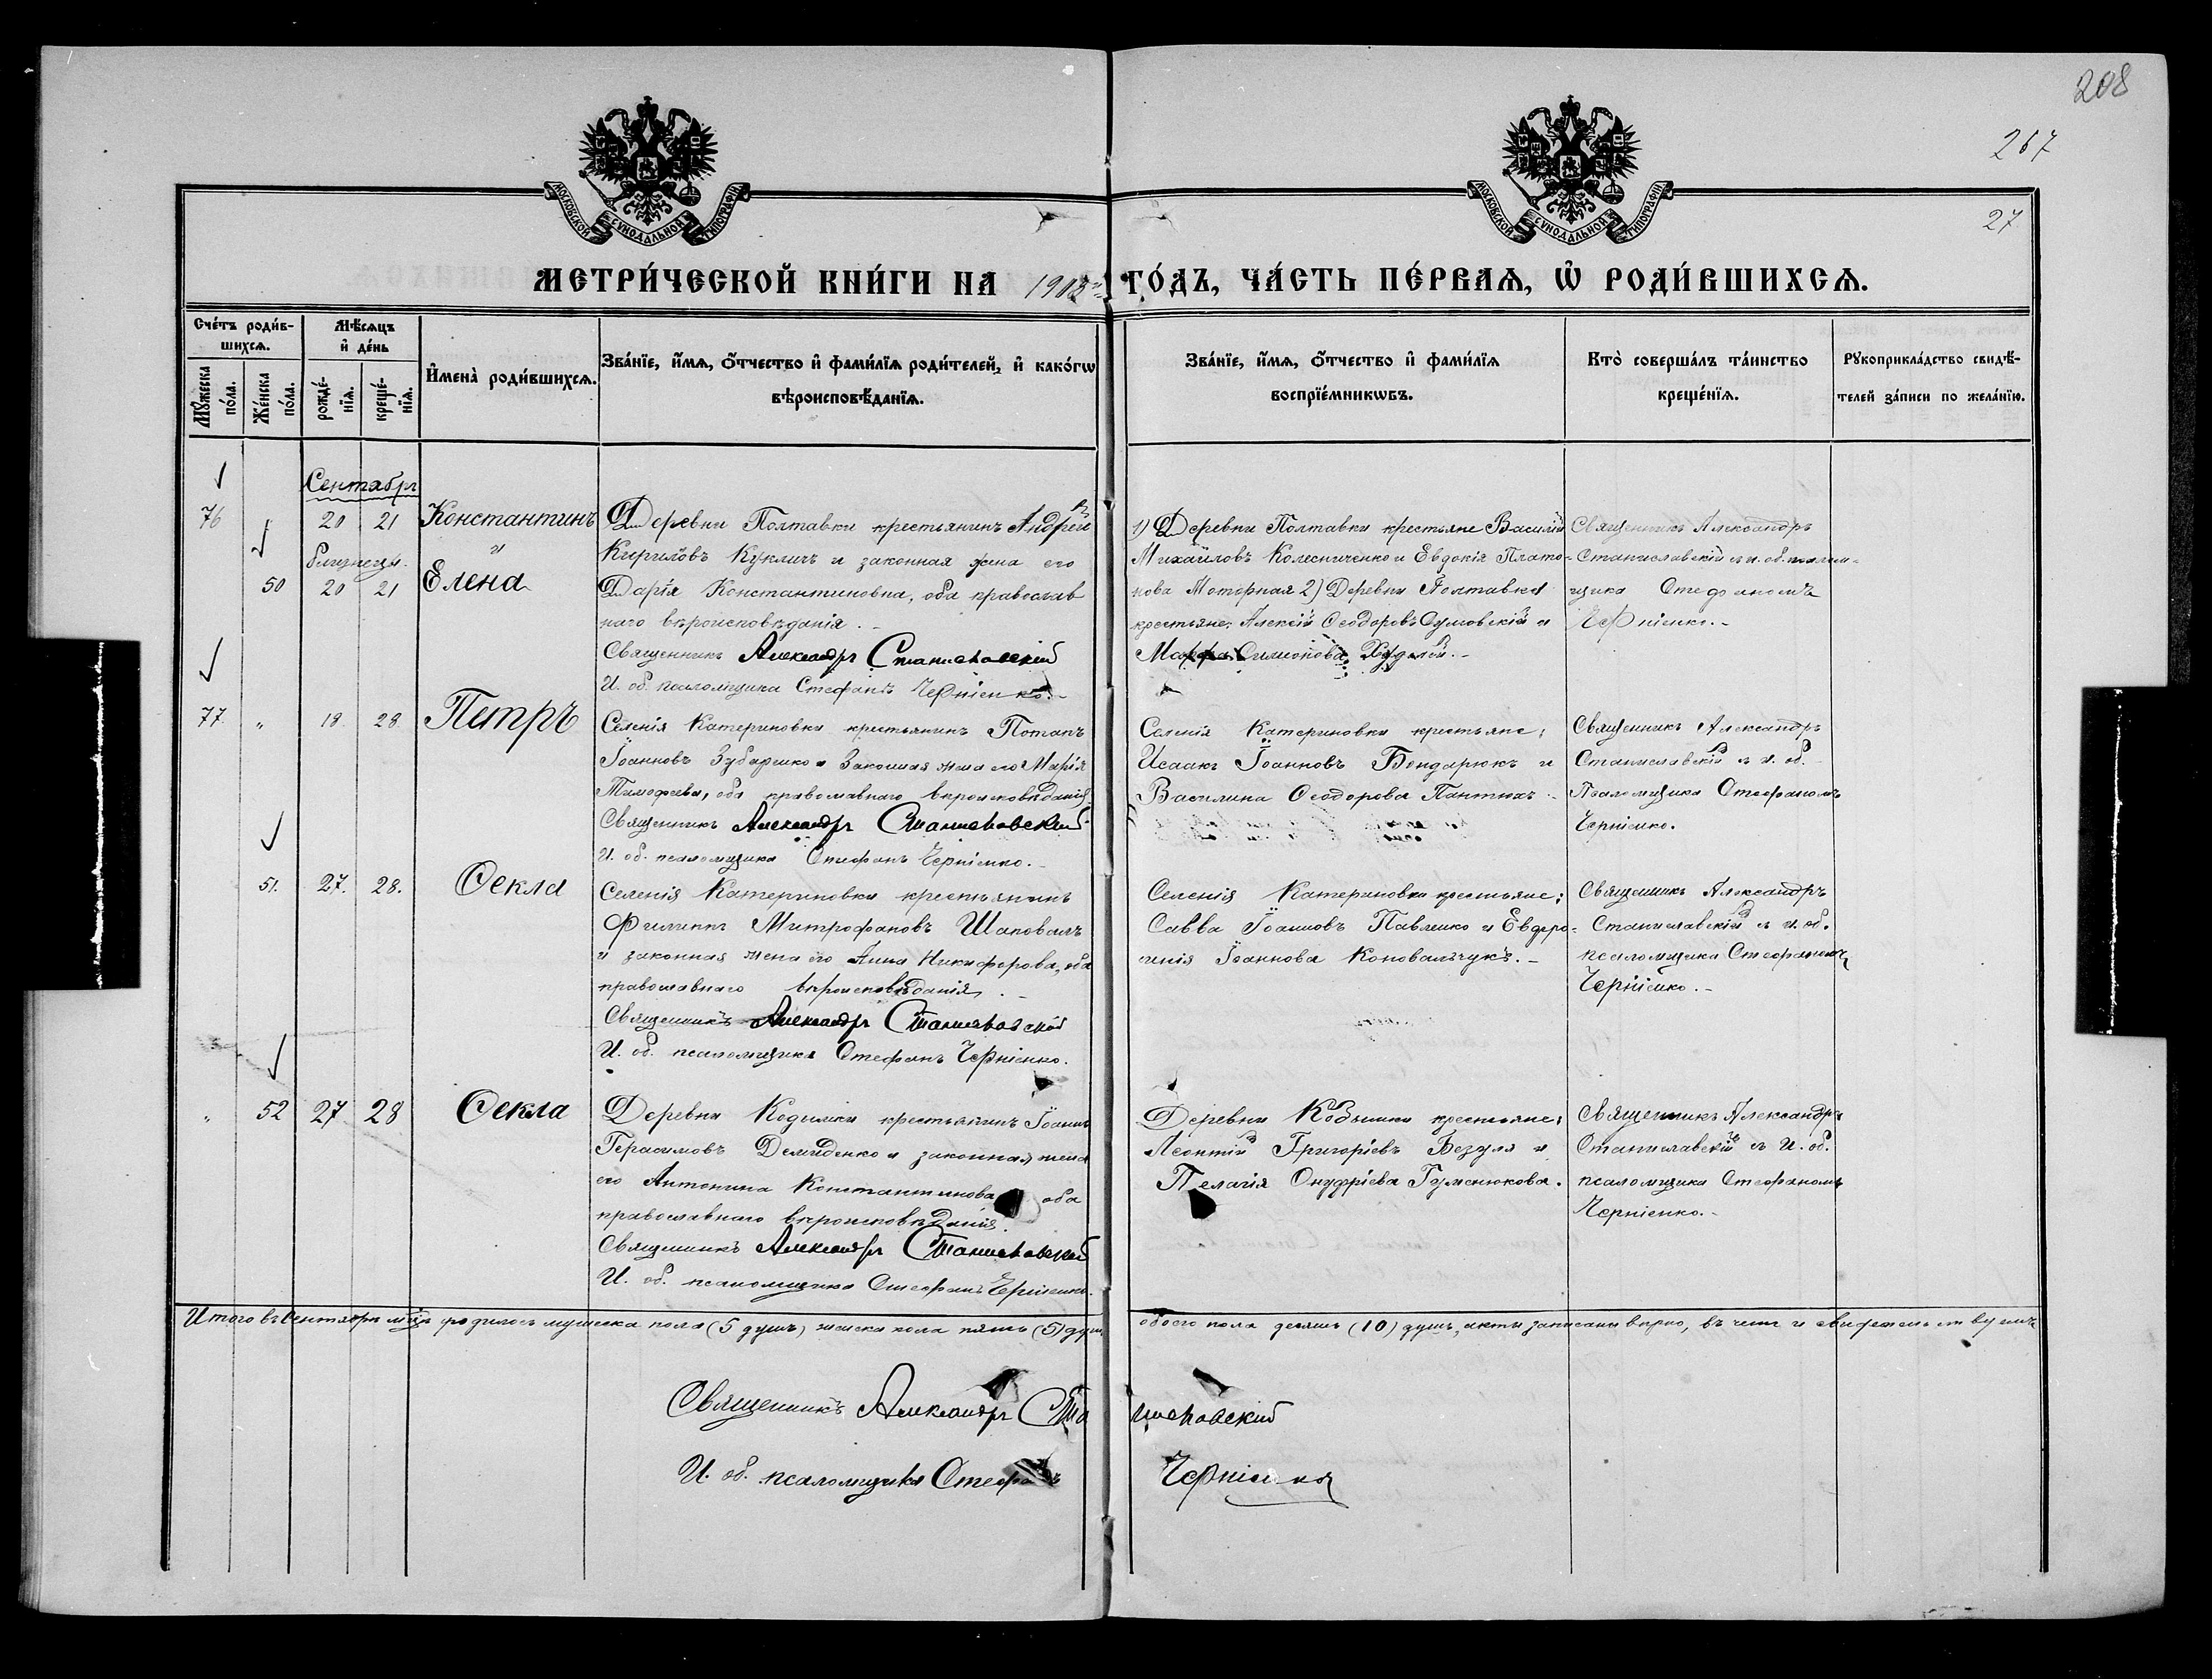 208
267
27
МОСКОВСКОЙ СѴНОДАЛЬНОЙ ТИПОГРАФІИ
МОСКОВСКОЙ СѴНОДАЛЬНОЙ ТИПОГРАФІИ
МЕТРИ́ЧЕСКОЙ КНИ́ГИ НА 1908 ГО́ДЪ, ЧА́СТЬ ПЕ́РВАѦ, Ѡ҆ РОДИ́ВШИХСѦ.
Сче́тъ роди́в-
шихсѧ.
Мꙋ́жеска по́ла.
Же́нска по́ла.
Мѣ́сѧцъ
и҆ де́нь
рожде́-нїѧ.
креще́-нїѧ.
И҆мена̀ роди́вшихсѧ.
Зва́нїе, и҆́мѧ, ѻ҆́тчество и҆ фами́лїѧ роди́телей, и҆ како́гѡ
вѣроисповѣ́данїѧ.
Зва́нїе, и҆́мѧ, ѻ҆́тчество и҆ фами́лїѧ
воспрїе́мникѡвъ.
Кто̀ соверша́лъ та́инство
креще́нїѧ.
Рꙋкоприкла́дство свидѣ́-
телей за́писи по жела́нїю.
Сентябрь
76 20 21 Константинъ
и
близнецы.
50 20 21 Елена
Деревни Полтавки крестьянинъ Андрей
Кириловъ Кукличъ и законная жена его
Дарія Константиновна, оба православ
наго вѣроисповѣданія.
Священникъ Александръ Станиславскій
И. об. псаломщика Стефанъ Черніенко.
1) Деревни Полтавки крестьяне Василій
Михаиловъ Колесниченко и Евдокія Плато-
нова Моторная 2) Деревни Полтавки
крестьяне: Алексій Ѳеодоровъ Сумовскій и
Марфа Симеонова
Священникъ Александръ
Станиславскій съ и. об. псалом-
щика Стефаномъ
Черніенко.
77 " 18 28 Петръ
Селенія Катериновки крестьянинъ Потапъ
Іоанновъ Зубаренко и Законная жена его Марія
Тимофеева, оба православнаго вѣроисповѣданія
Священникъ Александръ Станиславскій
И. об. псаломщика Стефанъ Черніенко.
Селенія Катериновки крестьяне;
Исаакъ Іоанновъ Бондарюкъ и
Василина Ѳеодорова Пантюхъ
Священникъ Александръ
Станиславскій съ и. об.
Псаломщика Стефаномъ
Черніенко.
51. 27. 28. Ѳекла
Селенія Катериновки крестьянинъ
Филиппъ Митрофановъ Шаповалъ
и законная жена его Анна Никифорова, оба
православнаго вѣроисповѣданія.
Священникъ Александръ Станиславскій
И. об. псаломщика Стефанъ Черніенко.
Селенія Катериновки крестьяне;
Савва Іоанновъ Павленко и Евфро-
синія Іоаннова Коновальчукъ.
Священникъ Александръ
Станиславскій съ и. об.
псаломщика Стефаномъ
Черніенко.
" 52 27 28 Ѳекла
Деревни Кодымки крестьянинъ Іоаннъ
Герасимовъ Демиденко и законная жена
его Антонина Константинова оба
православнаго вѣроисповѣданія.
Священникъ Александръ Станиславскій
И. об. псаломщика Стефанъ Черніенко.
Деревни Кодымки крестьяне;
Леонтій Григоріевъ Безуля и
Пелагія Онуфріева Гуменюкова.
Священникъ Александръ
Станиславскій съ И. об.
псаломщика Стефаномъ
Черніенко.
Итого въ Сентябрѣ мцѣ родилось мужеска пола (5 душъ) женска пола пять (5) душ обоего пола десять (10) душъ, акты записаны вѣрно, въ чемъ и свидетельствуемъ
Священникъ Александръ Станиславскій
И. об. псаломщика Стефанъ Черніенко